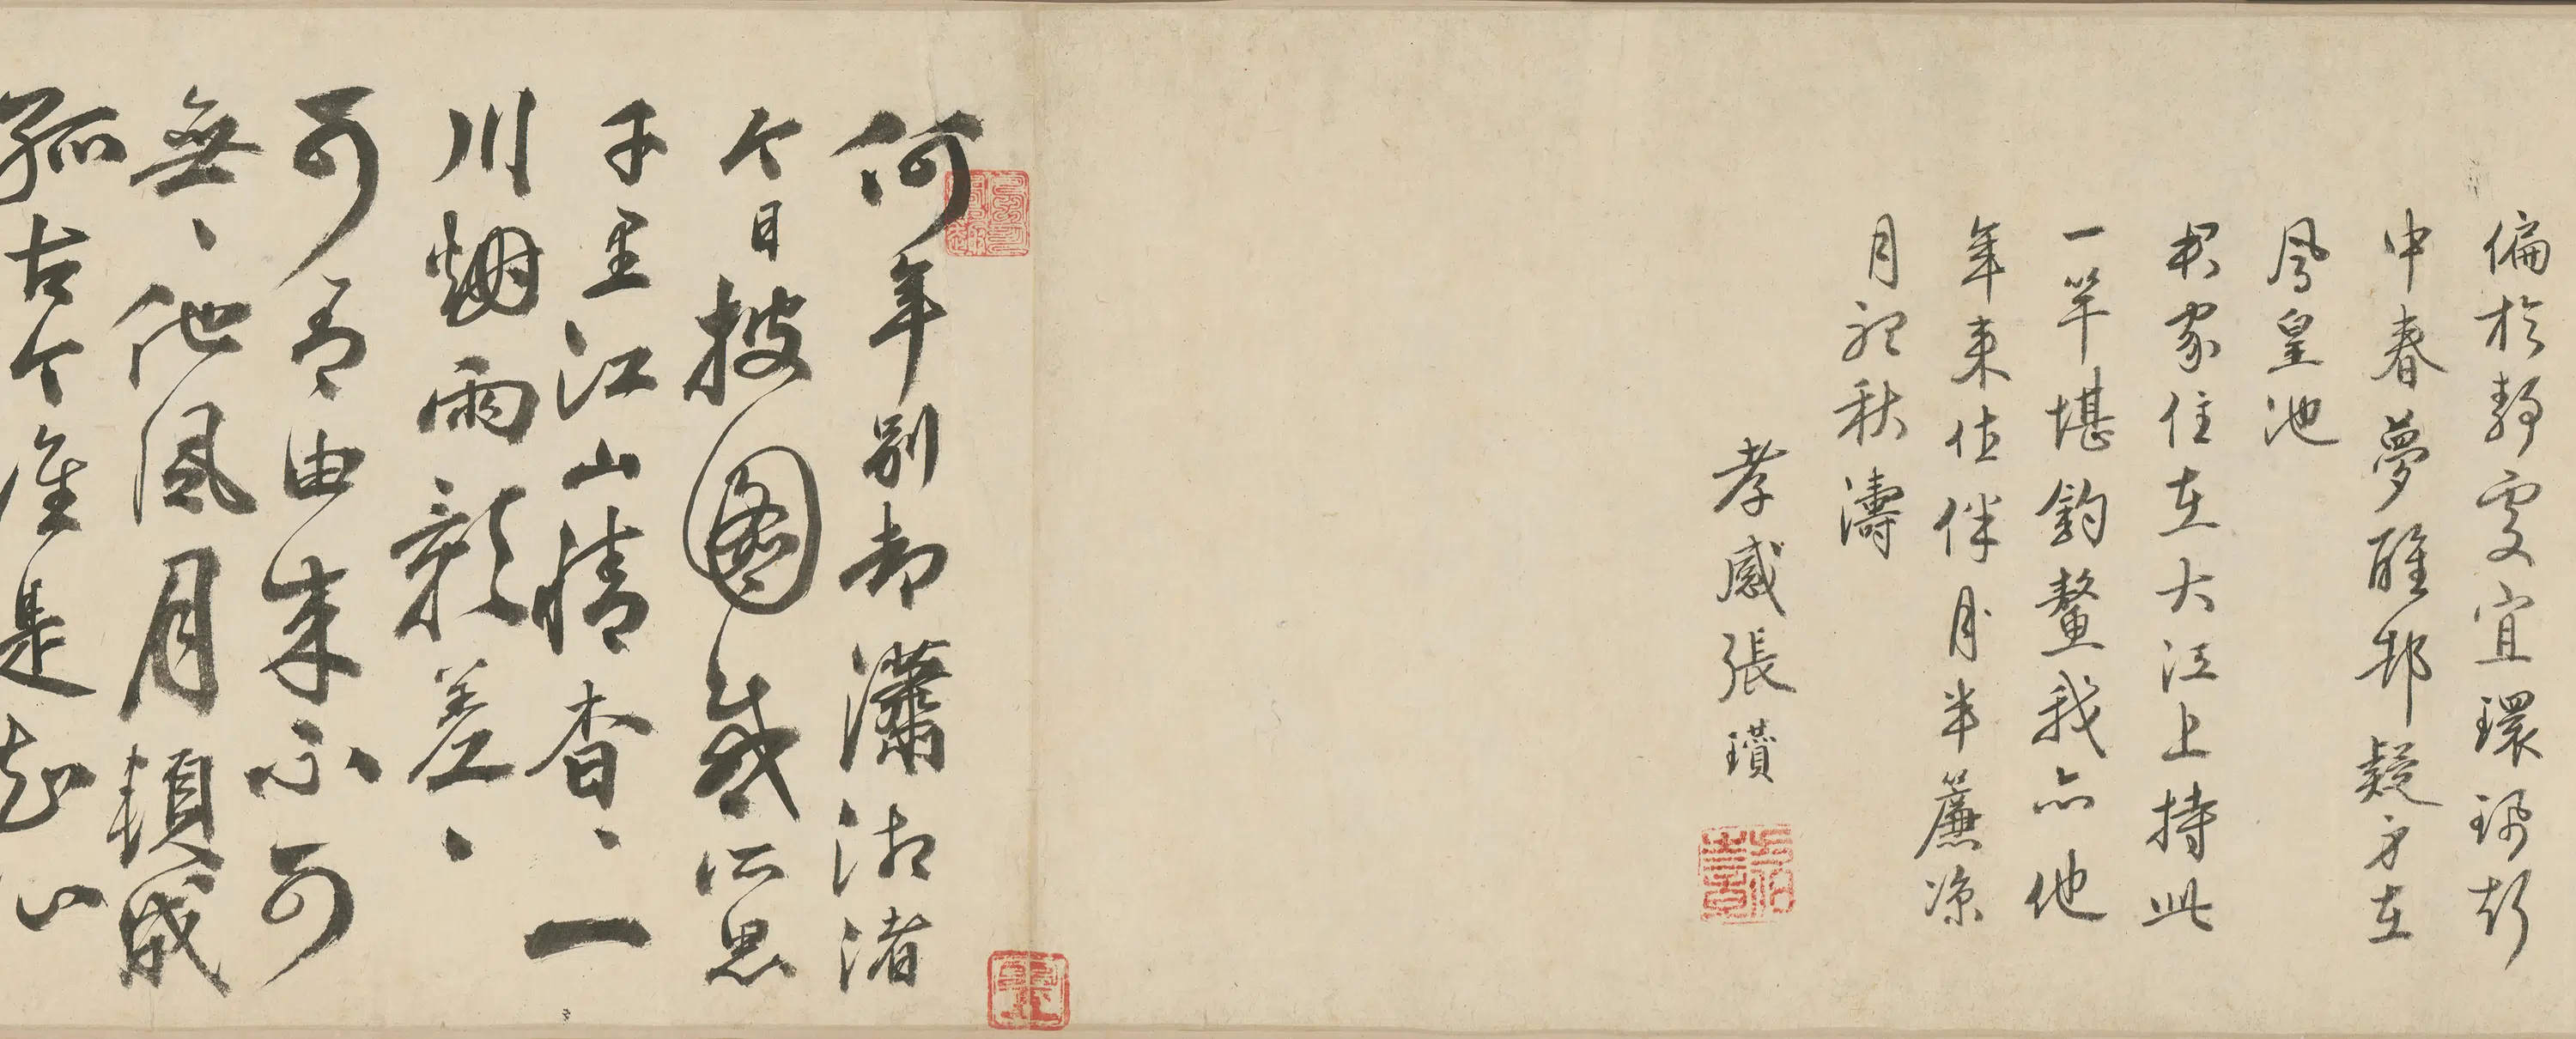 偏於静處宜環珮新
中春夢醒却疑身在
鳳皇池
我家住在大江上持此
一竿堪釣鼇我亦他
年東位伴月半簾凉
月聽秋濤
孝感張瓚
何年别却瀟湘渚
今日披圖感所思
千里江山情杳、一
川烟雨影差、
可 由来不可
無、他風月頓成
孤古今誰是知心